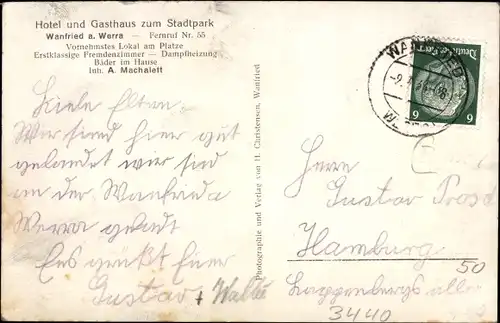 Hotel und Gasthaus zum Stadtpark
Wanfried a. Werra — Fernruf Nr. 55
Vornehmstes Lokal am Platze
Erstklassige Fremdenzimmer — Dampfheizung
Bäder im Hause
Inh. A. Machalett
Liebe Eltern.
Wir sind hier gut
gelandet wir sind
an der Wanfrieda
Werra
Es grüßt Euer
Gustav + Walter
Photographie und Verlag von H. Christensen, Wanfried
WANFRIED
Deutsches Reich
6 6
Herrn
Gustav
Hamburg
50
Lappenbergs allee
3440